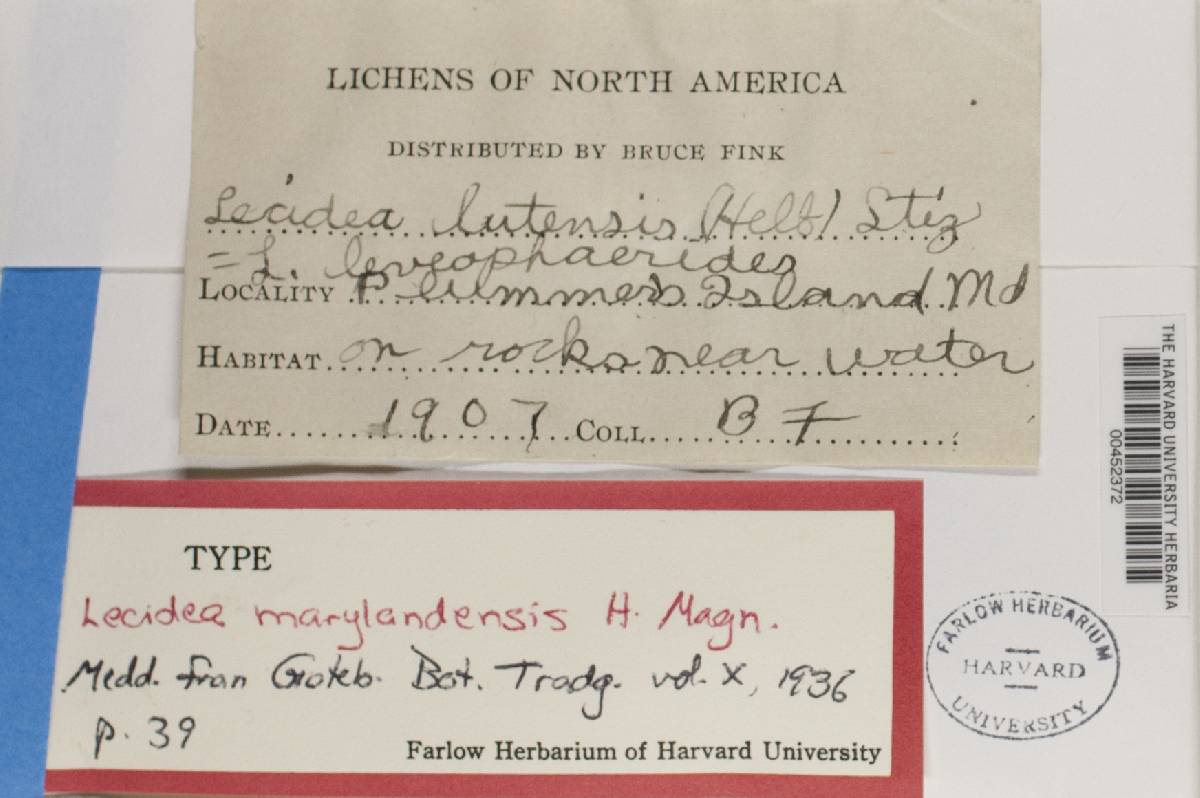 LICHENS OF NORTH AMERICA
DISTRIBUTED BY BRUCE FINK
Lecidea lutensis (Helb) Stiz
= L.
LOCALITY Plummers Island Md
HABITAT on rocks near water
DATE 1907 COLL B F
THE HARVARD UNIVERSITY HERBARIA
00452372
TYPE
Lecidea marylandensis H. Magn.
Medd. fran Goteb. Bot. Tradg. vol. X, 1936
p. 39
Farlow Herbarium of Harvard University
FARLOW HERBARIUM
HARVARD
UNIVERSITY